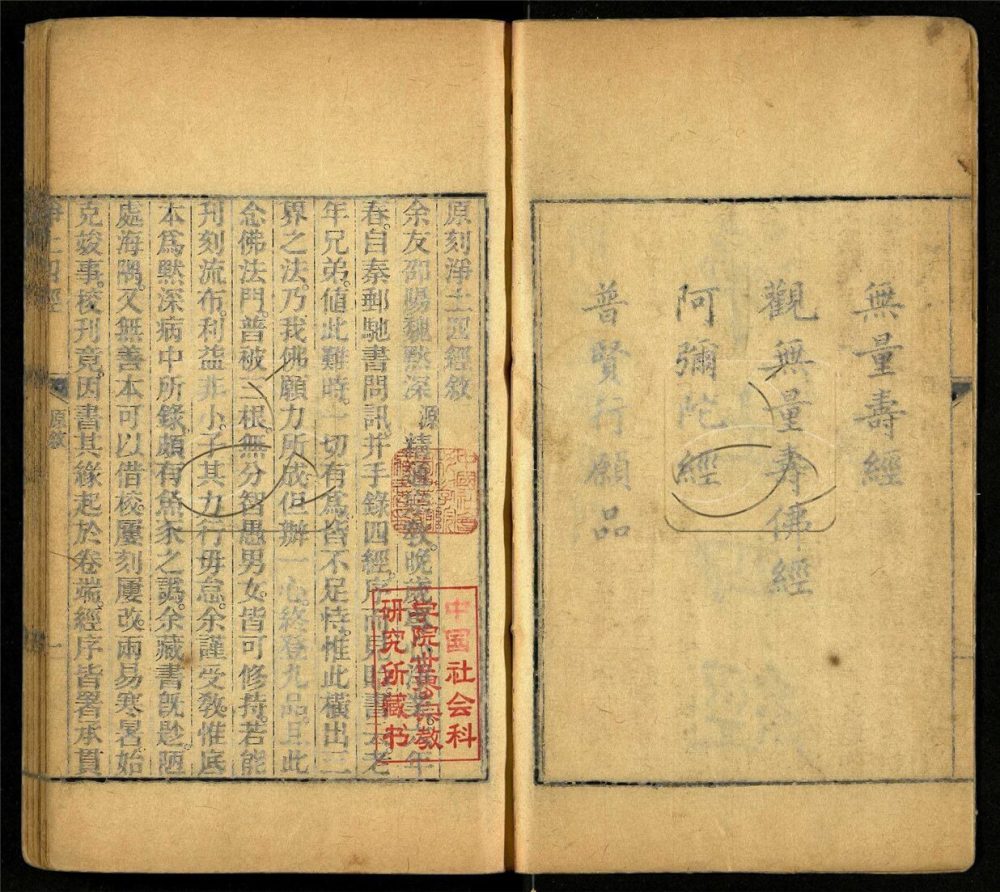 無量壽經
觀無量壽佛經
阿彌陀經
普賢行願品
原刻淨土四經敘
余友邵陽魏默深源精通教晚歲年
春。自秦郵馳書問訊。并手錄四經序而見貽。書老
年兄弟。值此難時。一切有爲皆不足恃。惟此橫出三
界之法。乃我佛願力所成。但辦一心。終登九品。且此
念佛法門。普被三根。無分智愚男女。皆可修持。若能
刊刻流布。利益非小。子其力行毋怠。余謹受教。惟底
本爲默深病中所錄。頗有魚豕之譌。余藏書既尠。陋
處海隅。又無善本可以借校。屢刻屢改。兩易寒暑。始
克竣事。校刊竟。因書其緣起於卷端。經序皆署承貫
淨土四經 原敘 一
中国社会科
学院世界宗教
研究所藏书